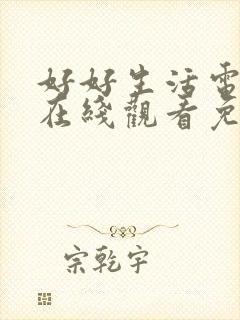 好好生活電
在綫觀看免
宗乾宇